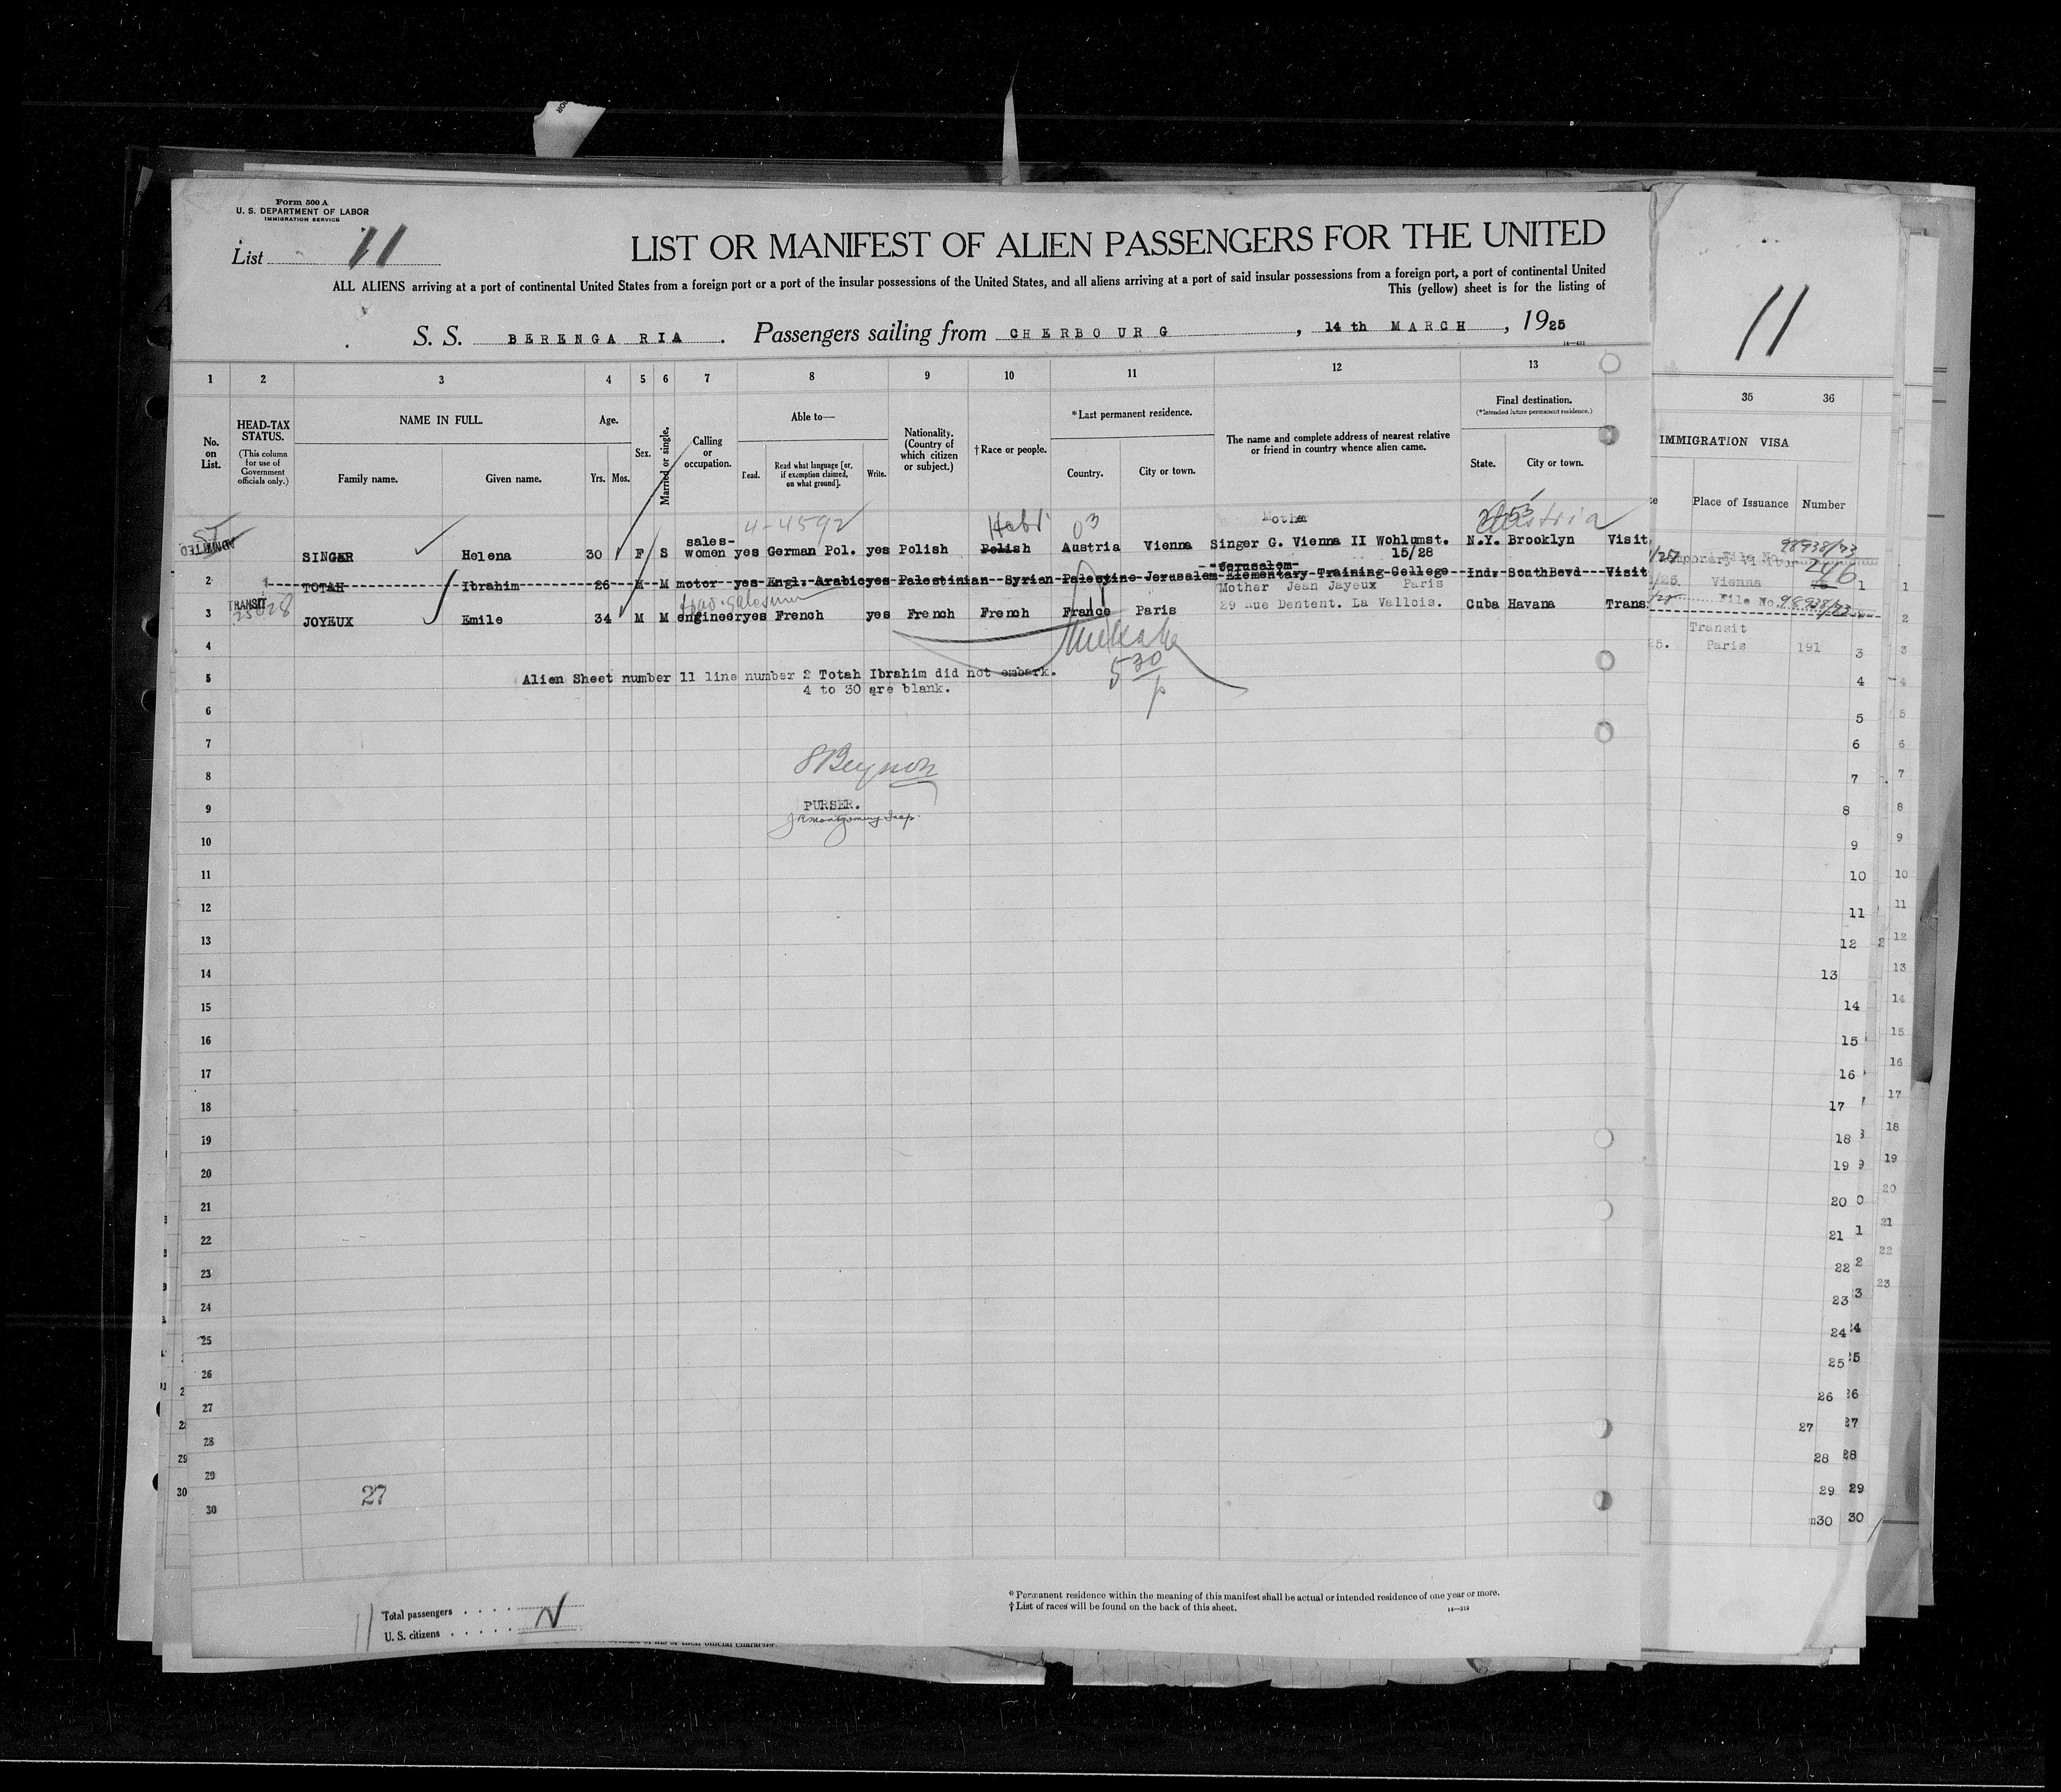 Form 500 A
U. S. DEPARTMENT OF LABOR
IMMIGRATION SERVICE
List 11
LIST OR MANIFEST OF ALIEN PASSENGERS FOR THE UNITED
ALL ALIENS arriving at a port of continental United States from a foreign port or a port of the insular possessions of the United States, and all aliens arriving at a port of said insular possessions from a foreign port, a port of continental United
This (yellow) sheet is for the listing of
S. S. BERENGARIA. Passengers sailing from CHERBOURG, 14th MARCH, 1925
11
1 2 3 4 5 6 7 8 9 10 11 12 13 35 36
No. on List.
HEAD-TAX STATUS.
(This column for use of Government officials only.)
NAME IN FULL.
Family name. Given name.
Age.
Yrs. Mos.
Sex.
Married or single.
Calling or occupation.
Able to—
Read. Read what language [or, if exemption claimed, on what ground]. Write.
Nationality. (Country of which citizen or subject.)
†Race or people.
*Last permanent residence.
Country. City or town.
The name and complete address of nearest relative or friend in country whence alien came.
Final destination.
(*Intended future permanent residence.)
State. City or town.
IMMIGRATION VISA
Place of Issuance Number
4-4592 Hebr 03 Mother Austria
ADMITTED SINGER Helena 30 F S sales-women yes German Pol. yes Polish Polish Austria Vienna Singer G. Vienna II Wohlumst. 15/28 N.Y. Brooklyn Visit
File No. 98938/73
Vienna 246 1
2 TOTAH Ibrahim 26 M M motor yes Engl. Arabic yes Palestinian Syrian Palestine Jerusalem Jerusalem Elementary Training College Ind. SouthBevd Visit
File No. 98938/73
TRANSIT
3 JOYEUX Emile 34 M M engineer yes French yes French French France Paris Mother Jean Jayeux Paris
29 Rue Dentent. La Vallois. Cuba Havana Trans
Transit
25. Paris 191 3
4
5 Alien Sheet number 11 line number 2 Totah Ibrahim did not embark.
4 to 30 are blank.
530
p
6
7
8 Beynon
9 PURSER.
JR Montgomery Insp.
10
11
12
13
14
15
16
17
18
19
20
21
22
23
24
25
26
27
28
29
30
27
Total passengers
U. S. citizens
*Permanent residence within the meaning of this manifest shall be actual or intended residence of one year or more.
†List of races will be found on the back of this sheet.